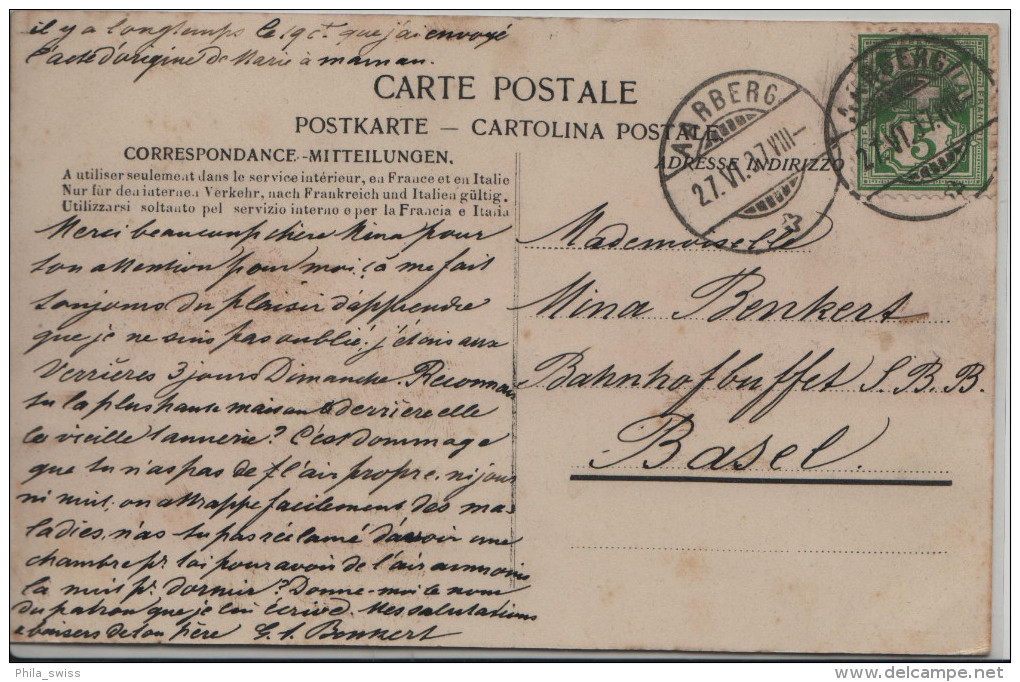 il y a longtemps le 9 ct. que j'ai envoyé
l'acte d'origine de Marie à maman.
CARTE POSTALE
POSTKARTE — CARTOLINA POSTALE
CORRESPONDANCE.-MITTEILUNGEN.
ADRESSE INDIRIZZO
A utiliser seulement dans le service intérieur, en France et en Italie
Nur für den internen Verkehr, nach Frankreich und Italien gültig.
Utilizzarsi soltanto pel servizio interno e per la Francia e Italia
AARBERG
27.VI.07.VIII—
27.VI.07.VIII
5
Merci beaucoup chère Mina pour
ton attention pour moi, ça me fait
toujours du plaisir d'apprendre
que je ne suis pas oublié. j'étais aux
Verrières 3 jours Dimanche. Reconnais
tu la plus haute maison & derrière elle
la vieille tannerie? C'est dommage
que tu n'as pas de l'air propre, ni jour
ni nuit, on attrappe facilement des ma-
ladies, n'as tu pas réclamé d'avoir une
chambre pr. toi pour avoir de l'air au moins
la nuit pr. dormir? Donne-moi le nom
du patron que je lui écrive. Mes salutations
& baisers de ton père G. S. Benkert
Mademoiselle
Mina Benkert
Bahnhofbuffet S.B.B.
Basel.
Phila_swiss